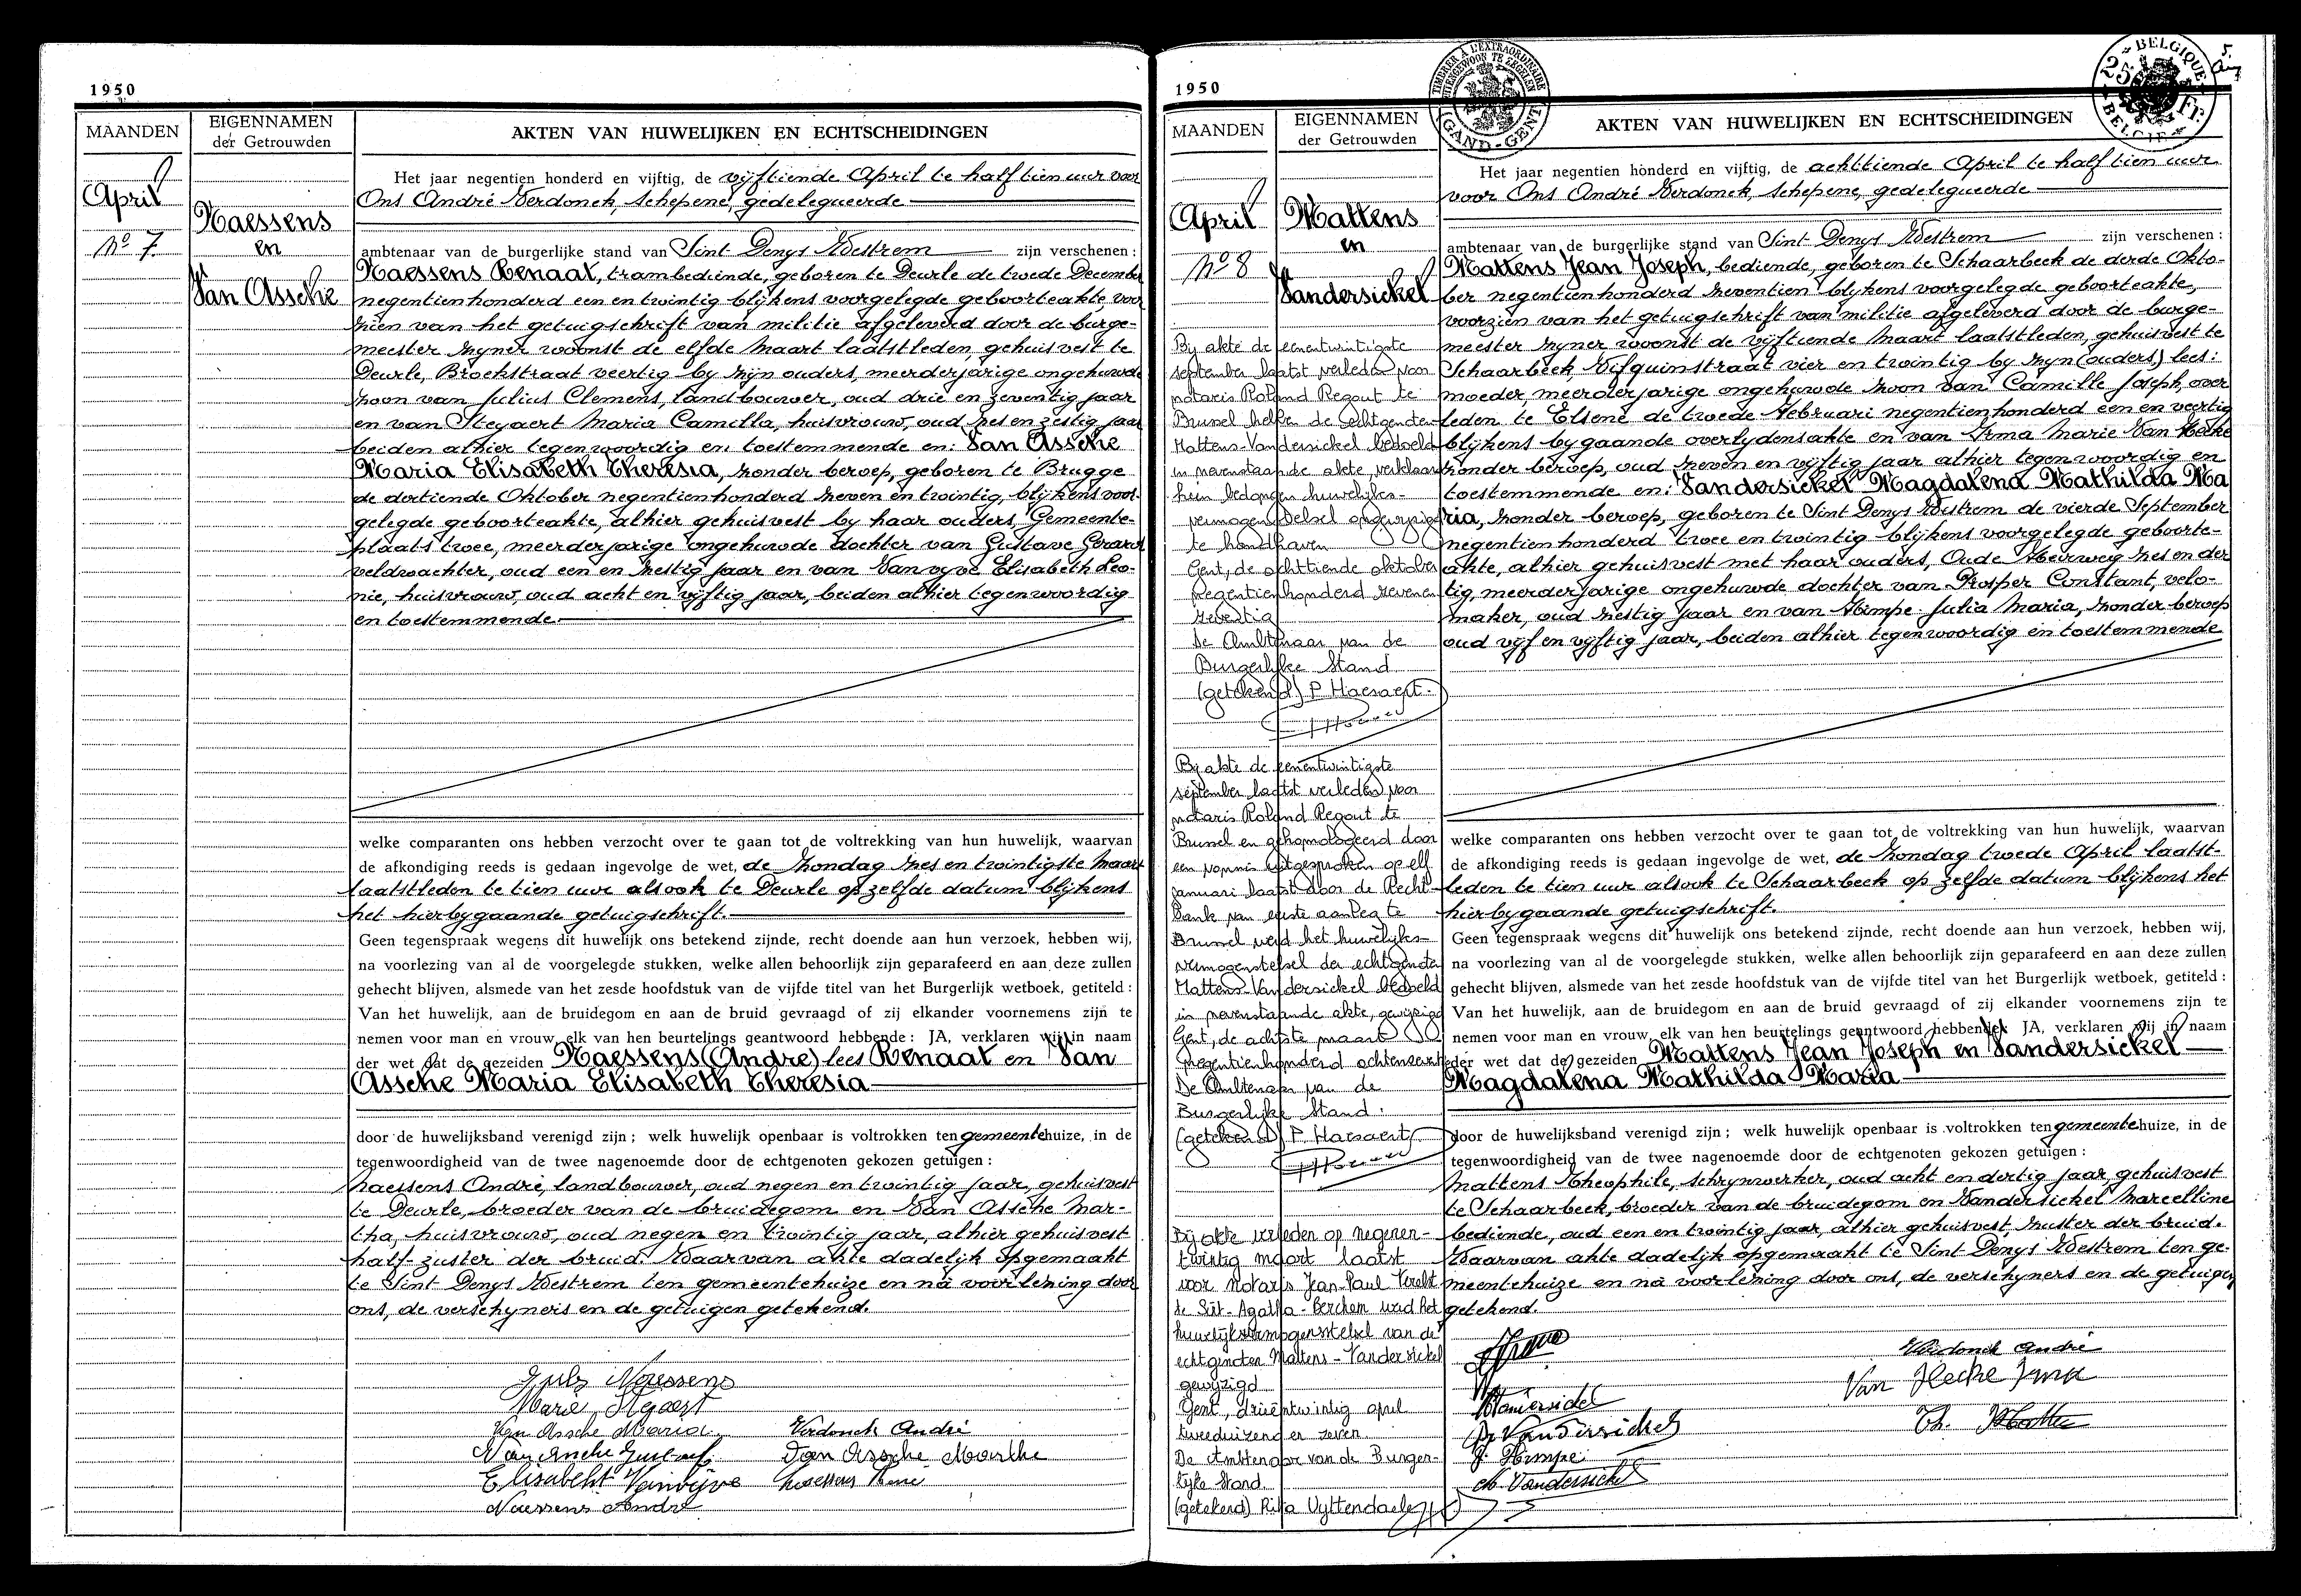 1950
MAANDEN
EIGENNAMEN
der Getrouwden
AKTEN VAN HUWELIJKEN EN ECHTSCHEIDINGEN
April
No 7.
Naessens
en
Van Assche
Het jaar negentien honderd en vijftig, de vijftiende April te half tien uur voor
Ons André Verdonck, Schepene, gedelegueerde
ambtenaar van de burgerlijke stand van Sint Denys Westrem zijn verschenen:
Naessens Renaat, trambediende, geboren te Deurle de twede December
negentienhonderd een en twintig blijkens voorgelegde geboorteakte, voor
zien van het getuigschrift van militie afgeleverd door de burge-
meester zijner woonst de elfde Maart laatstleden, gehuisvest te
Deurle, Broekstraat veertig by zijn ouders, meerderjarige ongehuwde
zoon van Julius Clemens, landbouwer, oud drie en zeventig jaar
en van Steyaert Maria Camilla, huisvrouw, oud zes en zestig jaar
beiden alhier tegenwoordig en toestemmende en: Van Assche
Maria Elisabeth Theresia, zonder beroep, geboren te Brugge
de dertiende Oktober negentienhonderd zeven en twintig, blijkens voor-
gelegde geboorteakte, alhier gehuisvest by haar ouders, Gemeente-
plaats twee, meerderjarige ongehuwde dochter van Gustave Gerard
veldwachter, oud een en zestig jaar en van Vanvyve Elisabeth Leo-
nie, huisvrouw, oud acht en vijftig jaar, beiden alhier tegenwoordig
en toestemmende.
welke comparanten ons hebben verzocht over te gaan tot de voltrekking van hun huwelijk, waarvan
de afkondiging reeds is gedaan ingevolge de wet, de zondag zes en twintigste Maart
laatstleden te tien uur alsook te Deurle op zelfde datum blijkens
het hierbygaande getuigschrift.
Geen tegenspraak wegens dit huwelijk ons betekend zijnde, recht doende aan hun verzoek, hebben wij,
na voorlezing van al de voorgelegde stukken, welke allen behoorlijk zijn geparafeerd en aan deze zullen
gehecht blijven, alsmede van het zesde hoofdstuk van de vijfde titel van het Burgerlijk wetboek, getiteld:
Van het huwelijk, aan de bruidegom en aan de bruid gevraagd of zij elkander voornemens zijn te
nemen voor man en vrouw, elk van hen beurtelings geantwoord hebbende: JA, verklaren wij in naam
der wet dat de gezeiden Naessens (André) lees Renaat en Van
Assche Maria Elisabeth Theresia
door de huwelijksband verenigd zijn; welk huwelijk openbaar is voltrokken ten gemeentehuize, in de
tegenwoordigheid van de twee nagenoemde door de echtgenoten gekozen getuigen:
Naessens André, landbouwer, oud negen en twintig jaar, gehuisvest
te Deurle, broeder van de bruidegom en Van Assche Mar-
tha, huisvrouw, oud negen en twintig jaar, alhier gehuisvest
half-zuster der bruid. Waarvan akte dadelijk opgemaakt
te Sint Denys Westrem ten gemeentehuize en na voorlezing door
ons, de verschyners en de getuigen getekend.
Jules Naessens
Marie Stegaert
Van Assche Maria Verdonck André
Van Assche Gustaaf Van Assche Marthe
Elisabeht Vanvijve Naessens Rene
Naessens André
1950
TIMBRER A L'EXTRAORDINAIRE
BUITENGEWOON TE ZEGELEN
GAND-GENT
BELGIQUE
25 Fr.
BELGIE
MAANDEN
EIGENNAMEN
der Getrouwden
AKTEN VAN HUWELIJKEN EN ECHTSCHEIDINGEN
April
No 8
Mattens
en
Vandersickel
Bij akte de eenentwintigste
september laatst verleden voor
notaris Roland Regout te
Brussel hebben de echtgenoten
Mattens-Vandersickel bedoeld
in nevenstaande akte, verklaard
hun bedongen huwelijks-
vermogensstelsel ongewijzigd
te handhaven
Gent, de achttiende oktober
negentienhonderd zevenen
zeventig
De Ambtenaar van de
Burgerlijke Stand
(getekend) P. Haesaert.
Bij akte de eenentwintigste
september laatst verleden voor
notaris Roland Regout te
Brussel en gehomologeerd door
een vonnis uitgesproken op elf
januari laatst door de Recht-
bank van eerste aanleg te
Brussel werd het huwelijks-
vermogenstelsel der echtgenoten
Mattens-Vandersickel bedoeld
in nevenstaande akte, gewijzigd
Gent, de achtste maart
negentienhonderd achtenzeventig
De Ambtenaar van de
Burgerlijke Stand:
(getekend) P. Haesaert
Bij akte verleden op negenen-
twintig maart laatst
voor notaris Jean-Paul
te Sint-Agatha-Berchem werd het
huwelijksvermogensstelsel van de
echtgenoten Mattens-Vandersickel
gewijzigd
Gent, drieëntwintig april
tweeduizend en zeven
De Ambtenaar van de Burger-
lijke Stand.
(getekend) Rita Uyttendaele
Het jaar negentien honderd en vijftig, de achttiende April te half tien uur
voor Ons André Verdonck, Schepene, gedelegueerde
ambtenaar van de burgerlijke stand van Sint Denys Westrem zijn verschenen:
Mattens Jean Joseph, bediende, geboren te Schaarbeek de derde Okto-
ber negentienhonderd zeventien blijkens voorgelegde geboorteakte,
voorzien van het getuigschrift van militie afgeleverd door de burge-
meester zijner woonst de vijftiende Maart laatstleden, gehuisvest te
Schaarbeek Vifquinstraat vier en twintig by zijn (ouders) lees:
moeder, meerderjarige ongehuwde zoon van Camille Joseph, over
leden te Elsene de twede Februari negentienhonderd een en veertig
blijkens bygaande overlydensakte en van Irma Marie Van Hecke
zonder beroep, oud zeven en vijftig jaar alhier tegenwoordig en
toestemmende en: Vandersickel Magdalena Mathilda Ma
ria, zonder beroep, geboren te Sint Denys Westrem de vierde September
negentienhonderd twee en twintig blijkens voorgelegde geboorte-
akte, alhier gehuisvest met haar ouders, Oude Heirweg zes en der
tig, meerderjarige ongehuwde dochter van Prosper Constant, velo-
maker, oud zestig jaar en van Himpe Julia Maria, zonder beroep
oud vijf en vijftig jaar, beiden alhier tegenwoordig en toestemmende
welke comparanten ons hebben verzocht over te gaan tot de voltrekking van hun huwelijk, waarvan
de afkondiging reeds is gedaan ingevolge de wet, de zondag twede April laatst-
leden te tien uur alsook te Schaarbeek op zelfde datum blijkens het
hierbygaande getuigschrift.
Geen tegenspraak wegens dit huwelijk ons betekend zijnde, recht doende aan hun verzoek, hebben wij,
na voorlezing van al de voorgelegde stukken, welke allen behoorlijk zijn geparafeerd en aan deze zullen
gehecht blijven, alsmede van het zesde hoofdstuk van de vijfde titel van het Burgerlijk wetboek, getiteld:
Van het huwelijk, aan de bruidegom en aan de bruid gevraagd of zij elkander voornemens zijn te
nemen voor man en vrouw, elk van hen beurtelings geantwoord hebbende: JA, verklaren wij in naam
der wet dat de gezeiden Mattens Jean Joseph en Vandersickel
Magdalena Mathilda Maria
door de huwelijksband verenigd zijn; welk huwelijk openbaar is voltrokken ten gemeentehuize, in de
tegenwoordigheid van de twee nagenoemde door de echtgenoten gekozen getuigen:
Mattens Theophile, schrynwerker, oud acht en dertig jaar, gehuisvest
te Schaarbeek, broeder van de bruidegom en Vandersickel Marcelline
bediende, oud een en twintig jaar, alhier gehuisvest, zuster der bruid.
Waarvan akte dadelijk opgemaakt te Sint Denys Westrem ten ge-
meentehuize en na voorlezing door ons, de verschyners en de getuigen
getekend.
Verdonck André
Van Hecke Irma
Vandersickel
P. Vandersickel
Th. Mattens
J. Himpe
M. Vandersickel